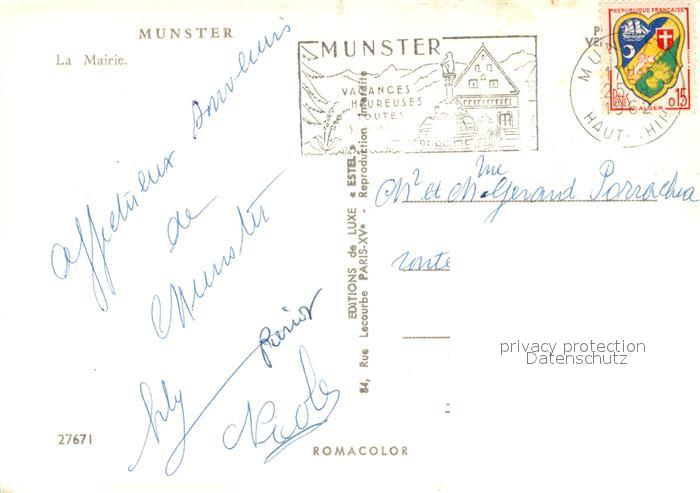 MUNSTER
La Mairie.
affectueux souvenirs
de
Munster
Pierrot
Nicole
27671
ROMACOLOR
EDITIONS de LUXE « ESTEL »
84, Rue Lecourbe PARIS-XVe - Reproduction Interdite
MUNSTER
VACANCES
HEUREUSES
TOUTES
MUN
25
1962
HAUT-RHIN
REPUBLIQUE FRANÇAISE
POSTES
0,15
ALGER
Mr et Mme Gerand Porrachia
route
privacy protection
Datenschutz